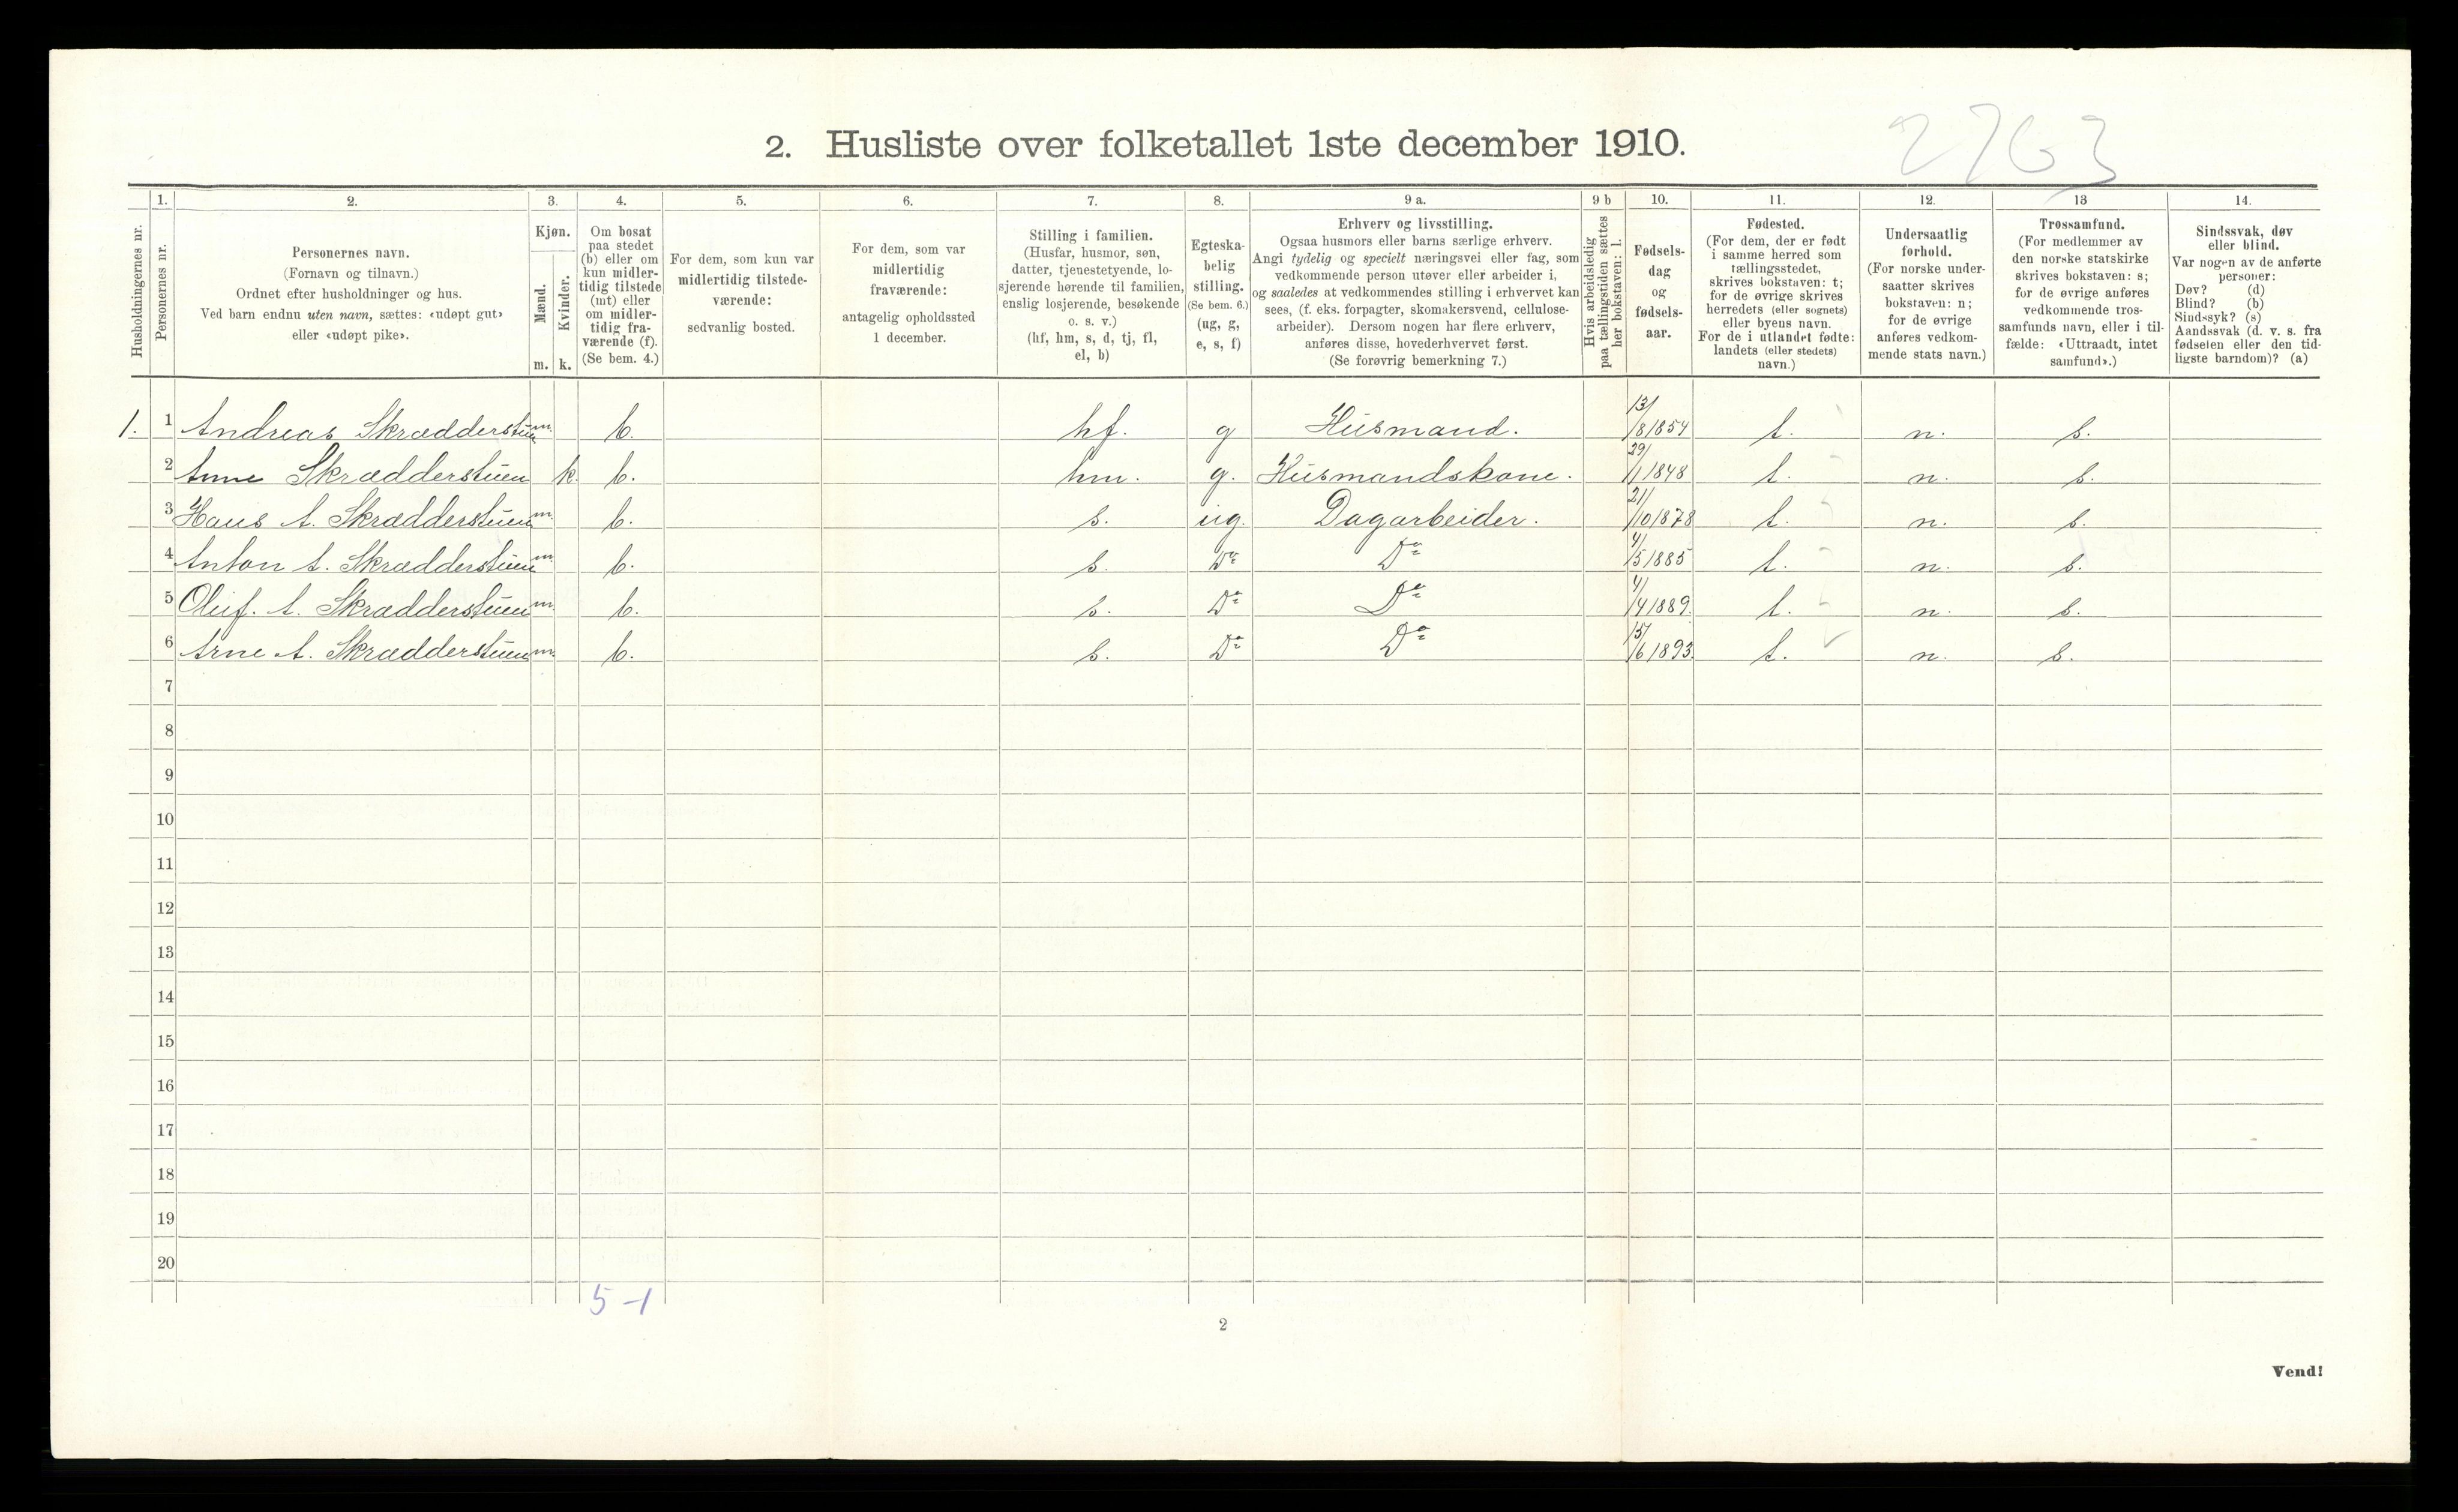 2763
2. Husliste over folketallet 1ste december 1910.
Husholdningernes nr.
1.
Personernes nr.
2.
Personernes navn.
(Fornavn og tilnavn.)
Ordnet efter husholdninger og hus.
Ved barn endnu uten navn, sættes: «udøpt gut»
eller «udøpt pike».
3.
Kjøn.
Mænd.
Kvinder.
m. k.
4.
Om bosat
paa stedet
(b) eller om
kun midler-
tidig tilstede
(mt) eller
om midler-
tidig fra-
værende (f).
(Se bem. 4.)
5.
For dem, som kun var
midlertidig tilstede-
værende:
sedvanlig bosted.
6.
For dem, som var
midlertidig
fraværende:
antagelig opholdssted
1 december.
7.
Stilling i familien.
(Husfar, husmor, søn,
datter, tjenestetyende, lo-
sjerende hørende til familien,
enslig losjerende, besøkende
o. s. v.)
(hf, hm, s, d, tj, fl,
el, b)
8.
Egteska-
belig
stilling.
(Se bem. 6.)
(ug, g,
e, s, f)
9 a.
Erhverv og livsstilling.
Ogsaa husmors eller barns særlige erhverv.
Angi tydelig og specielt næringsvei eller fag, som
vedkommende person utøver eller arbeider i,
og saaledes at vedkommendes stilling i erhvervet kan
sees, (f. eks. forpagter, skomakersvend, cellulose-
arbeider). Dersom nogen har flere erhverv,
anføres disse, hovederhvervet først.
(Se forøvrig bemerkning 7.)
9 b
Hvis arbeidsledig
paa tællingstiden sættes
her bokstaven: l.
10.
Fødsels-
dag
og
fødsels-
aar.
11.
Fødested.
(For dem, der er født
i samme herred som
tællingsstedet,
skrives bokstaven: t;
for de øvrige skrives
herredets (eller sognets)
eller byens navn.
For de i utlandet fødte:
landets (eller stedets)
navn.)
12.
Undersaatlig
forhold.
(For norske under-
saatter skrives
bokstaven: n;
for de øvrige
anføres vedkom-
mende stats navn.)
13
Trossamfund.
(For medlemmer av
den norske statskirke
skrives bokstaven: s;
for de øvrige anføres
vedkommende tros-
samfunds navn, eller i til-
fælde: «Uttraadt, intet
samfund».)
14.
Sindssvak, døv
eller blind.
Var nogen av de anførte
personer:
Døv? (d)
Blind? (b)
Sindssyk? (s)
Aandssvak (d. v. s. fra
fødselen eller den tid-
ligste barndom)? (a)
1. 1 Andreas Skrædderstuen m. b. hf. g Husmand. 13/8 1854 t. n. s.
2 Anne Skrædderstuen k. b. hm. g. Husmandskone. 29/1 1848 t. n. s.
3 Hans A. Skrædderstuen m. b. s. ug. Dagarbeider. 21/10 1878 t. n. s.
4 Anton A. Skrædderstuen m. b. s. Do Do 4/5 1885 t. n. s.
5 Oluf. A. Skrædderstuen m. b. s. Do Do 4/4 1889. t. n. s.
6 Arne A. Skrædderstuen m. b. s. Do Do 15/6 1893. t. n. s.
7
8
9
10
11
12
13
14
15
16
17
18
19
20
5-1
2
Vend!